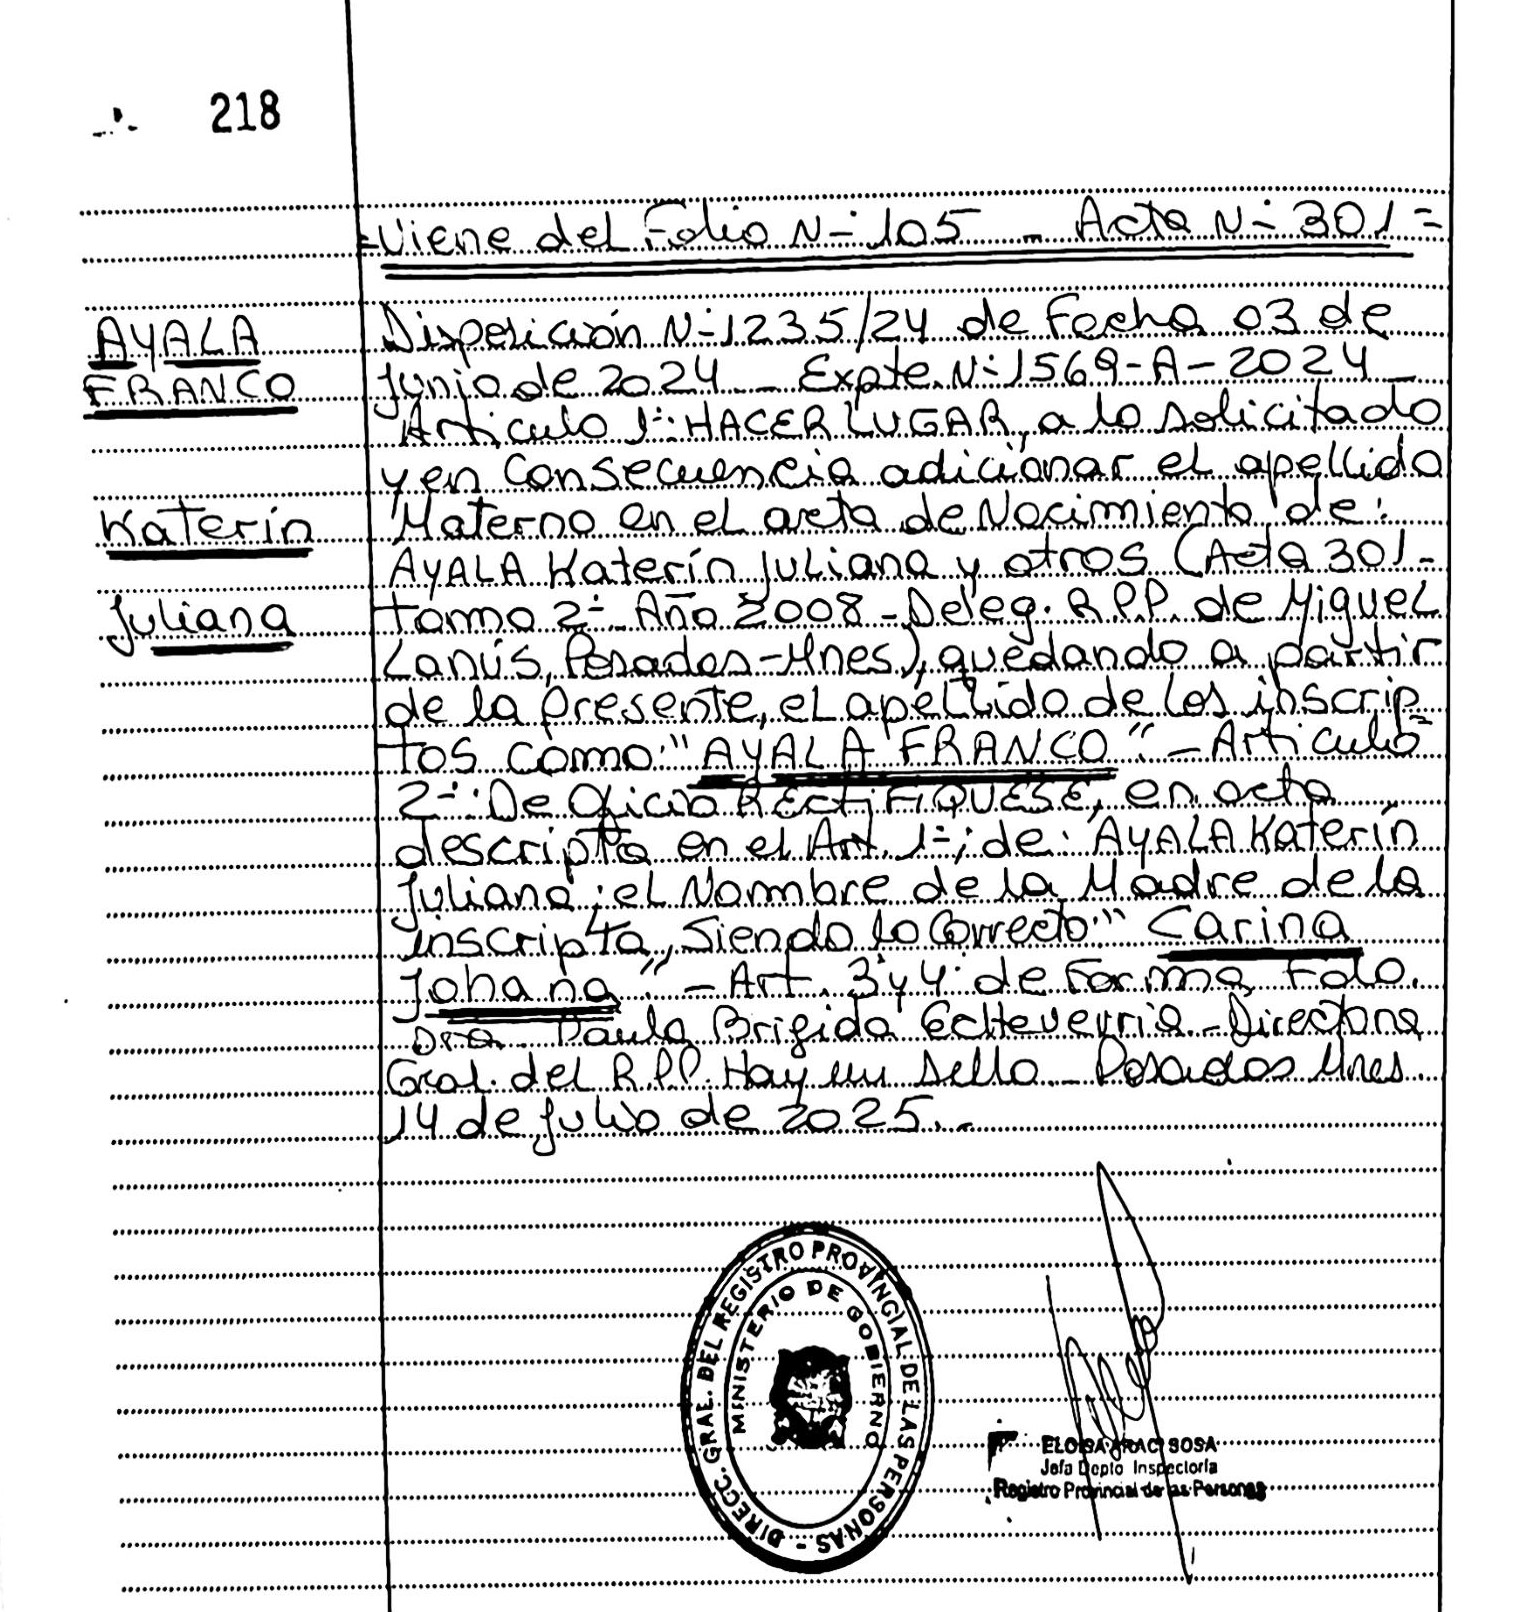 218
=Viene del Folio N- 105 - Acta N- 301=
AYALA
FRANCO
Katerín
Juliana
Disposición N-1235/24 de Fecha 03 de
Junio de 2024 - Expte. N- 1569-A-2024 -
Artículo 1-: HACER LUGAR, a lo solicitado
y en Consecuencia adicionar el apellido
Materno en el acta de Nacimiento de:
AYALA Katerín Juliana y otros (Acta 301-
tomo 2- Año 2008 - Deleg. R.P.P. de Miguel
Lanús, Posadas-Mnes.), quedando a partir
de la presente, el apellido de los inscrip=
tos como: "AYALA FRANCO". - Artículo
2-: De Oficio RECTIFIQUESE, en acta
descripta en el Art. 1-; de: AYALA Katerín
Juliana; el Nombre de la Madre de la
inscripta, Siendo lo Correcto: "Carina
Johana". - Art. 3 y 4: de Forma, Fdo.
Dra. Paula Brigida Echeverria - Directora
Gral. del R.P.P. Hay un sello - Posadas Mnes.
14 de Julio de 2025.-
DIRECC. GRAL. DEL REGISTRO PROVINCIAL DE LAS PERSONAS -
MINISTERIO DE GOBIERNO
ELOISA ARACI SOSA
Jefa Depto Inspectoría
Registro Provincial de las Personas